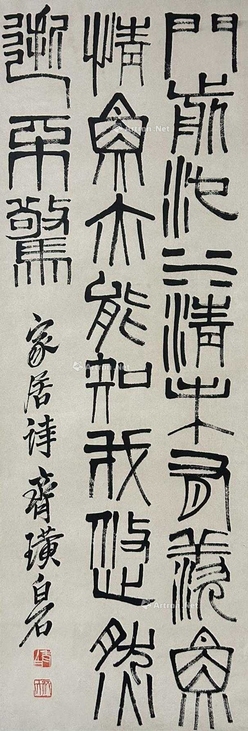 門前池水清未有羨魚
情魚亦能知我悠然
逝不驚
家居詩齊璜白石